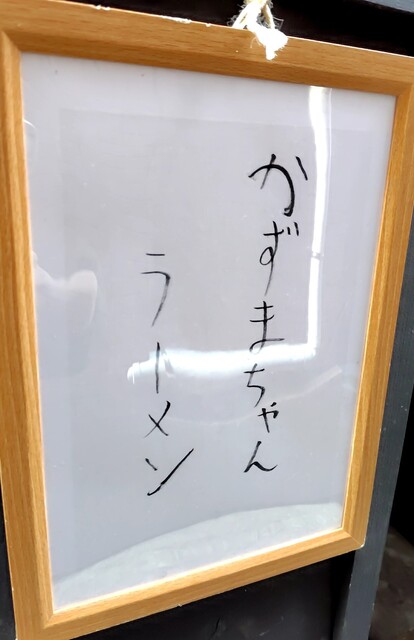 かずまちゃん
ラーメン